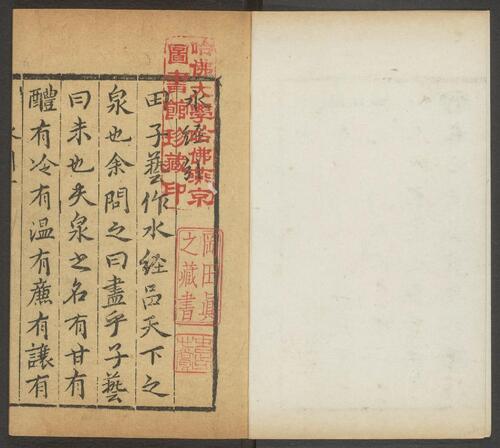 哈佛大學哈佛燕京
圖書館珍藏印
水経
田子藝作水経品天下之
泉也余問之曰盡乎子藝
曰未也夫泉之名有甘有
醴有冷有温有廉有讓有
岡田眞
之藏書